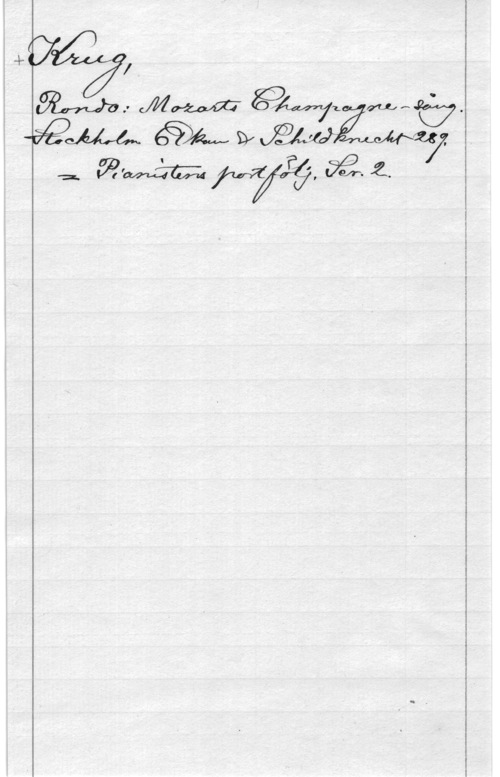 +Krug,
Rondo: Mozarts Champagne-sång.
Stockholm Elkan & Schildknecht 289.
= Pianistens portfölj. Ser. 2.